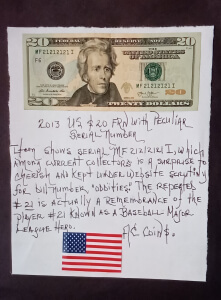 20
20
MF 21212121 I
F6
20
TWENTY DOLLARS
20
2013 U.S. $20 FRN with Peculiar
Serial Number
Item shows serial MF 21212121 I, which
among current collectors is a surprise to
cherish and kept under website scrutiny
for bill number "oddities". The repeated
#21 is actually a remembrance of the
player #21 known as a Baseball Major
League Hero.
A/C Coin$.